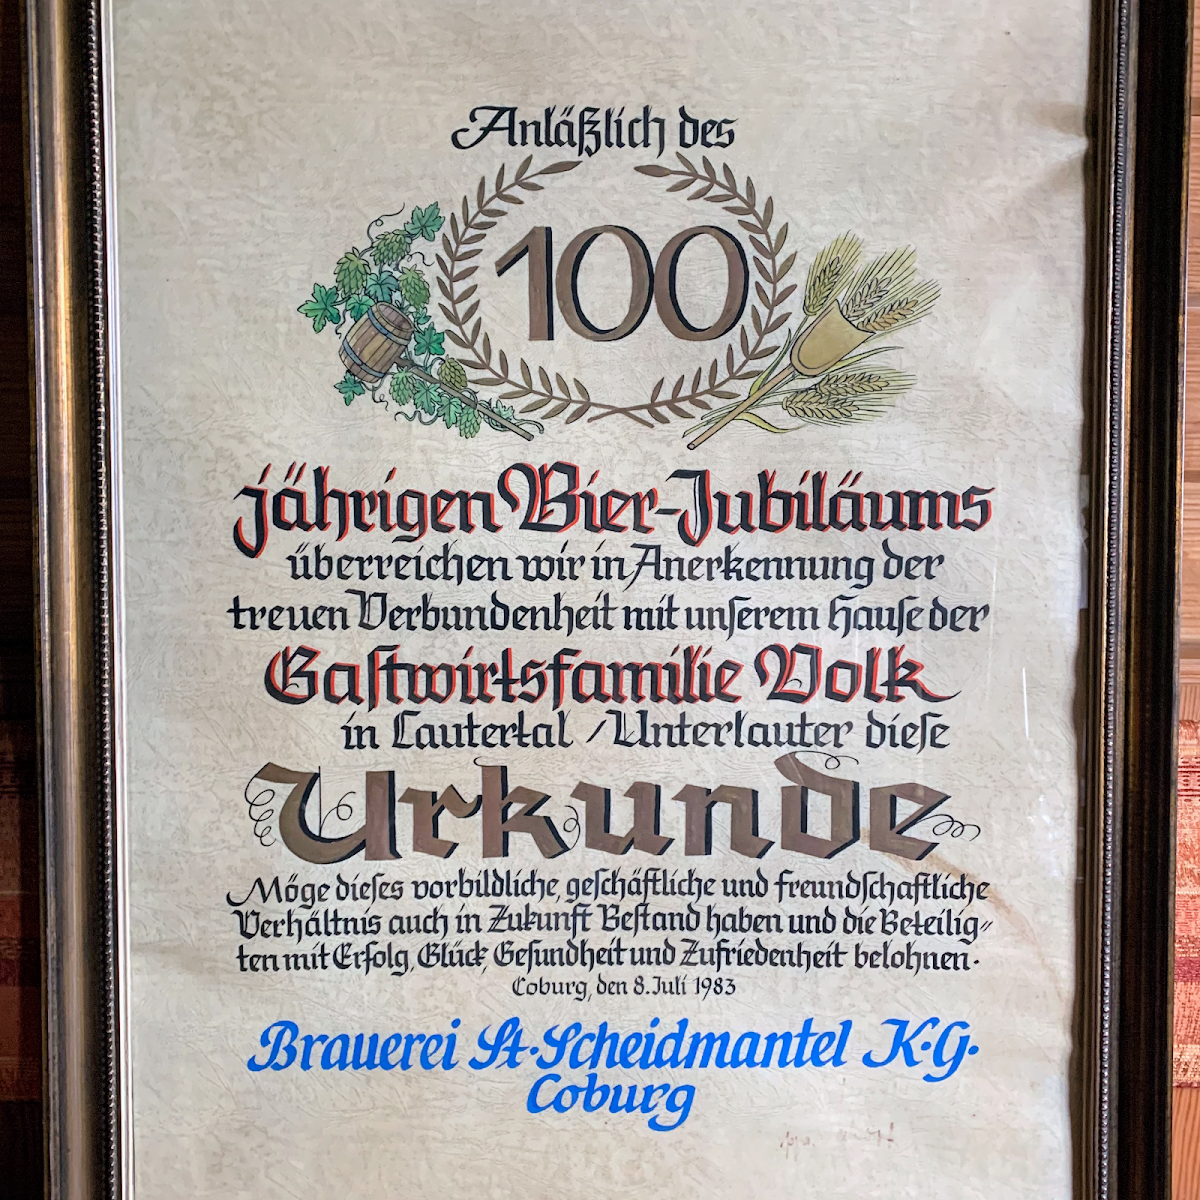 Anläßlich des
100
jährigen Bier-Jubiläums
überreichen wir in Anerkennung der
treuen Verbundenheit mit unſerem Hauſe der
Gaſtwirtsfamilie Volk
in Lautertal / Unterlauter dieſe
Urkunde
Möge dieſes vorbildliche, geſchäftliche und freundſchaftliche
Verhältnis auch in Zukunft Beſtand haben und die Beteilig⸗
ten mit Erfolg, Glück, Geſundheit und Zufriedenheit belohnen.
Coburg, den 8. Juli 1983
Brauerei St. Scheidmantel K.G.
Coburg